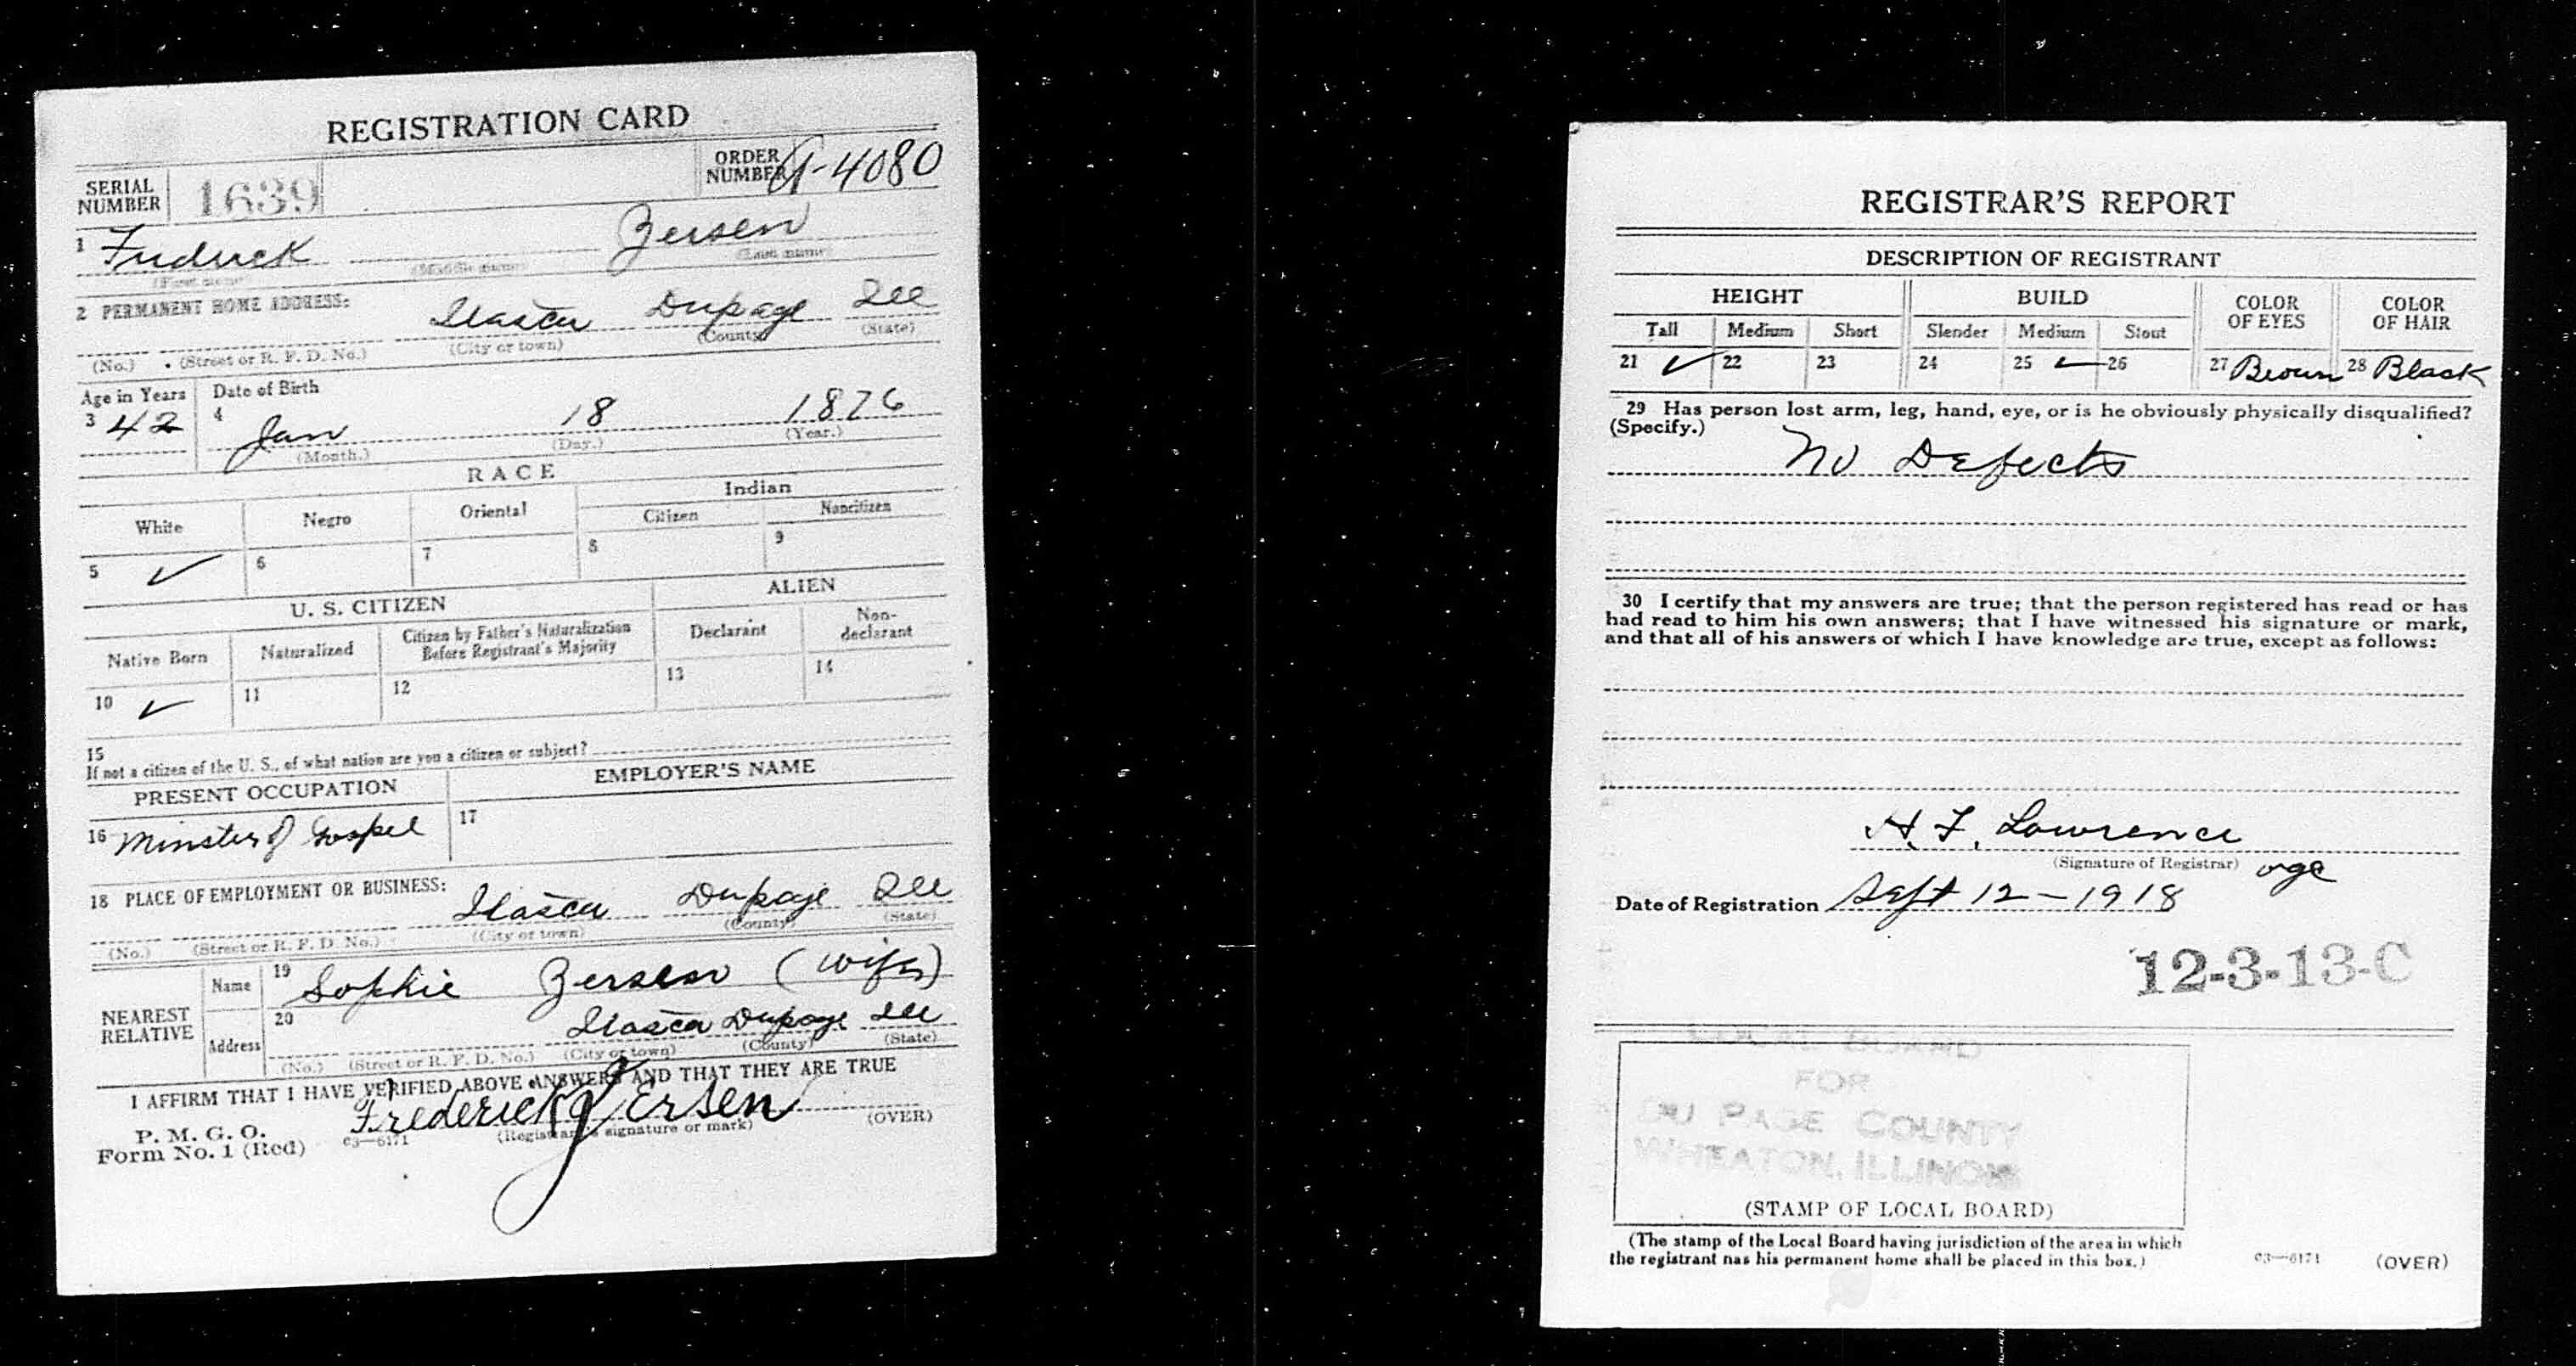 REGISTRATION CARD
SERIAL NUMBER 1639 ORDER NUMBER A-4080
1 Frederick Zersen
(First name) (Middle name) (Last name)
2 PERMANENT HOME ADDRESS:
Itasca Dupage Ill
(No.) (Street or R. F. D. No.) (City or town) (County) (State)
Age in Years Date of Birth
3 42 4 Jan 18 1876
(Month.) (Day.) (Year.)
RACE
White Negro Oriental Indian
Citizen Noncitizen
5 ✓ 6 7 8 9
U. S. CITIZEN ALIEN
Native Born Naturalized Citizen by Father's Naturalization Before Registrant's Majority Declarant Non-declarant
10 ✓ 11 12 13 14
15
If not a citizen of the U. S., of what nation are you a citizen or subject?
PRESENT OCCUPATION EMPLOYER'S NAME
16 Minster of Gospel 17
18 PLACE OF EMPLOYMENT OR BUSINESS:
Itasca Dupage Ill
(No.) (Street or R. F. D. No.) (City or town) (County) (State)
NEAREST RELATIVE
Name 19 Sophie Zersen (wife)
Address 20 Itasca Dupage Ill
(No.) (Street or R. F. D. No.) (City or town) (County) (State)
I AFFIRM THAT I HAVE VERIFIED ABOVE ANSWERS AND THAT THEY ARE TRUE
P. M. G. O.
Form No. 1 (Red) c3—6171 Frederick Zersen
(Registrant's signature or mark) (OVER)
REGISTRAR'S REPORT
DESCRIPTION OF REGISTRANT
HEIGHT BUILD COLOR OF EYES COLOR OF HAIR
Tall Medium Short Slender Medium Stout
21 ✓ 22 23 24 25 ✓ 26 27 Brown 28 Black
29 Has person lost arm, leg, hand, eye, or is he obviously physically disqualified?
(Specify.)
No Defects
30 I certify that my answers are true; that the person registered has read or has
had read to him his own answers; that I have witnessed his signature or mark,
and that all of his answers of which I have knowledge are true, except as follows:
H. F. Lawrence
(Signature of Registrar)
Date of Registration Sept 12-1918
12-3-13-C
LOCAL BOARD
FOR
DU PAGE COUNTY
WHEATON, ILLINOIS
(STAMP OF LOCAL BOARD)
(The stamp of the Local Board having jurisdiction of the area in which
the registrant has his permanent home shall be placed in this box.)
c3—6171 (OVER)